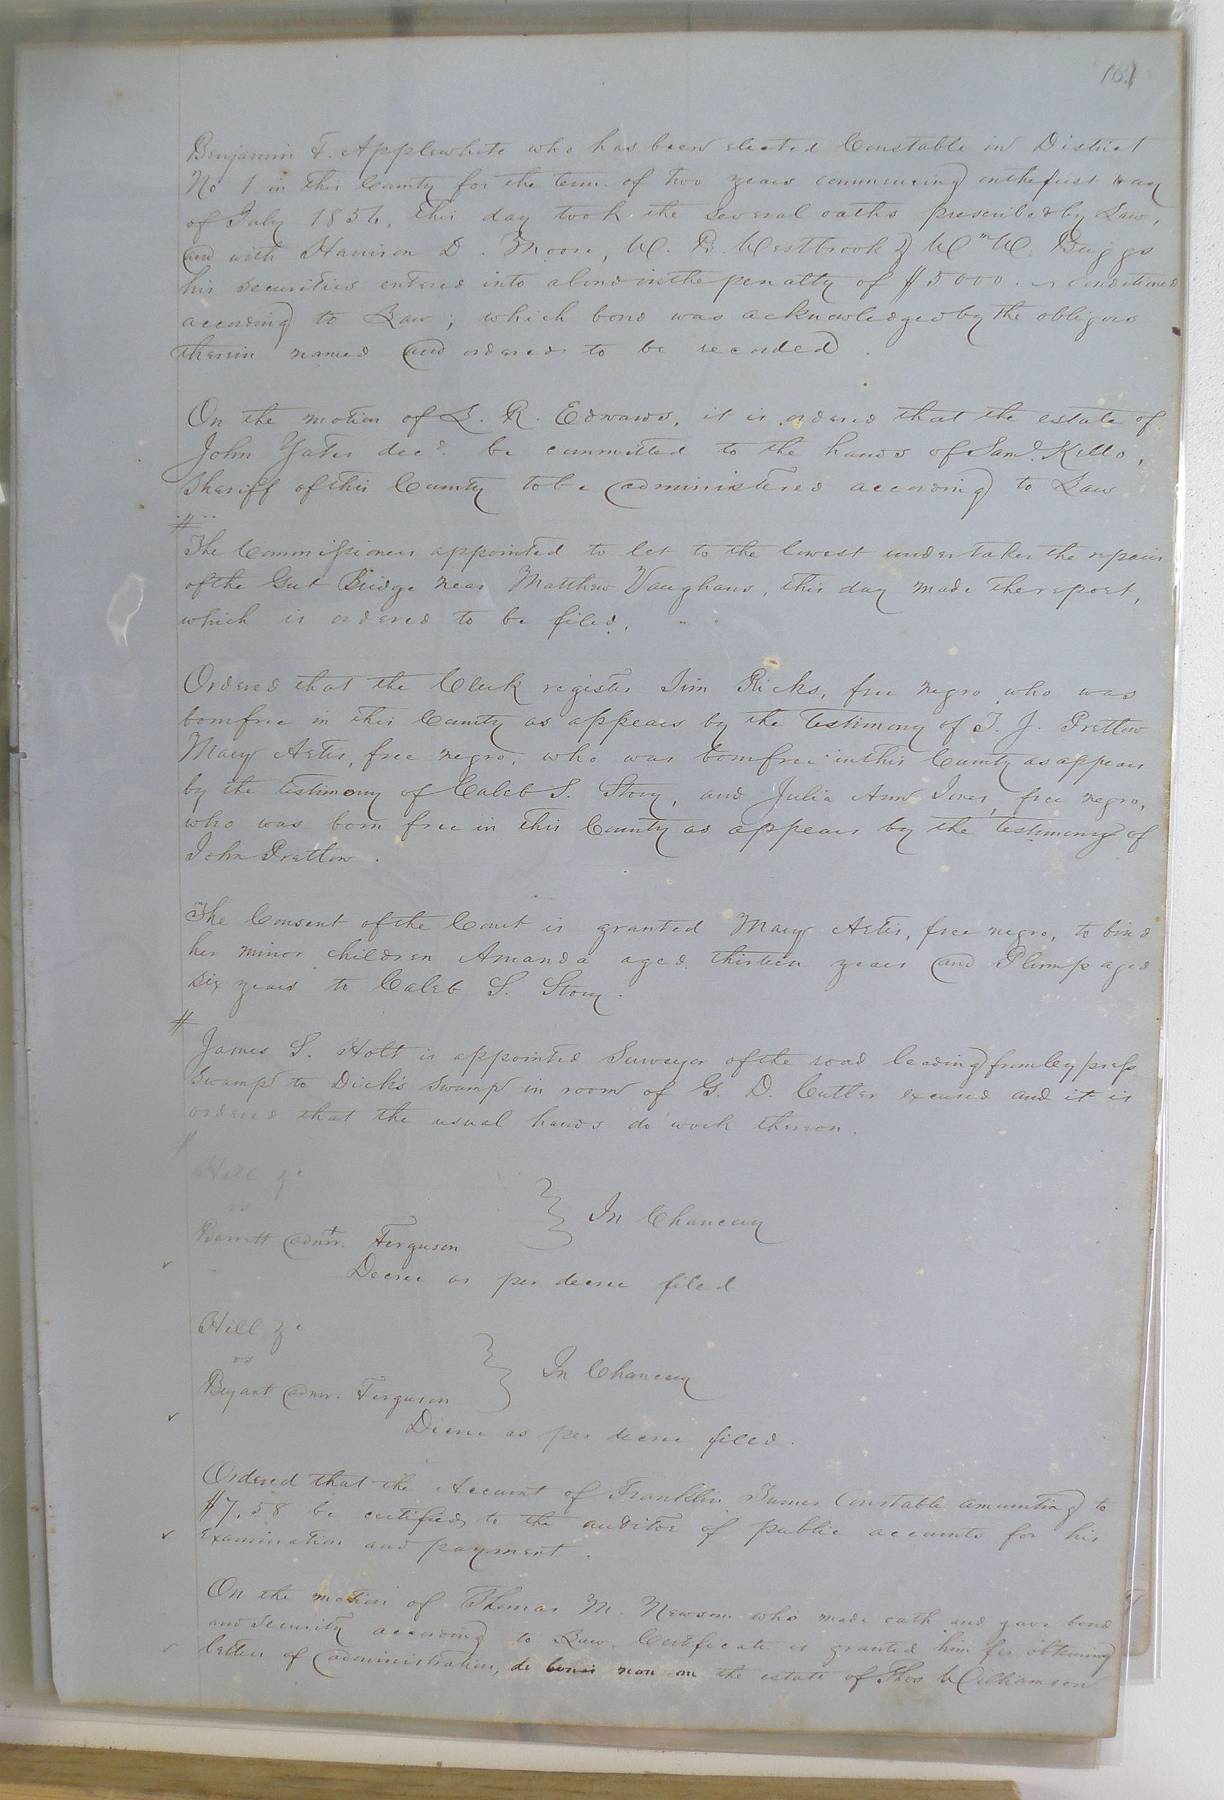 181
Benjamin F. Applewhite who has been elected Constable in District
No 1 in this County for the term of two years commencing on the first day
of July 1856, this day took the several oaths prescribed by Law,
and with Harrison D. Moore, W. B. Westbrook & Wm W. Briggs
his securities entered into a bond in the penalty of $5000. conditioned
according to Law; which bond was acknowledged by the obligors
therein named and ordered to be recorded.
On the motion of L. R. Edwards, it is ordered that the estate of
John Yates decd. be committed to the hands of Saml. Kello,
Sheriff of this County to be administered according to Law
#
The Commissioners appointed to let to the lowest undertaker the repairs
of the Gut Bridge near Matthew Vaughans, this day made the report,
which is ordered to be filed.
Ordered that the Clerk register Jim Ricks, free negro who was
born free in this County as appears by the testimony of T. J. Pretlow
Mary Artis, free negro, who was born free in this County as appears
by the testimony of Caleb S. Story, and Julia Ann Jones, free negro,
who was born free in this County as appears by the testimony of
John Pretlow.
The Consent of the Court is granted Mary Artis, free negro, to bind
her minor children Amanda aged thirteen years and Plump aged
six years to Caleb S. Story.
#
James S. Holt is appointed Surveyor of the road leading from Cypress
Swamp to Dick's Swamp in room of G. D. Cutler excused and it is
ordered that the usual hands do work thereon.
#
Hill &c
vs
Barrett admr. Ferguson
} In Chancery
Decree as per decree filed
Hill &c
vs
Bryant admr. Ferguson
} In Chancery
Decree as per decree filed.
Ordered that the Account of Franklin Turner Constable amounting to
$7.58 be certified to the auditor of public accounts for his
Examination and payment.
On the motion of Thomas M. Newsom who made oath and gave bond
and security according to Law. Certificate is granted him for obtaining
letters of administration, de bonis non on the estate of Thos Williamson